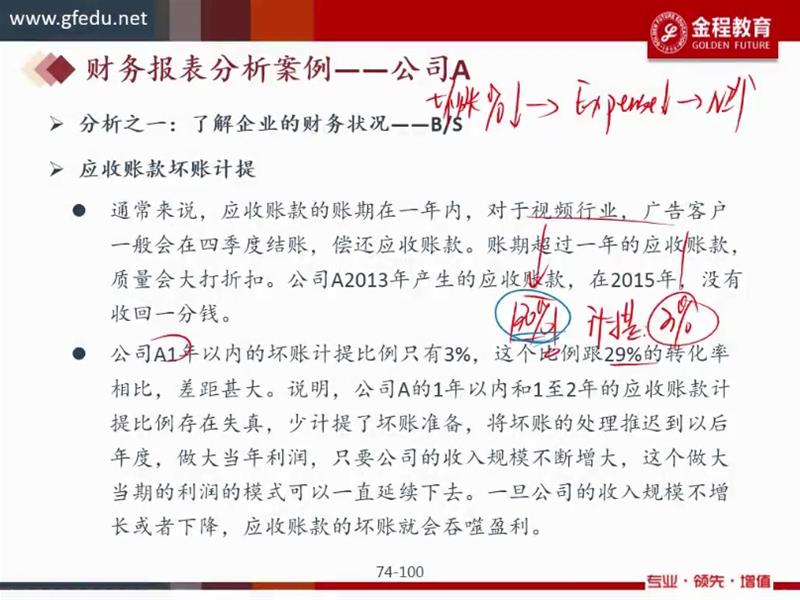 www.gfedu.net
金程教育
GOLDEN FUTURE
财务报表分析案例——公司A
坏账%↓→Expense↓→NI↑
分析之一：了解企业的财务状况——B/S
应收账款坏账计提
通常来说，应收账款的账期在一年内，对于视频行业，广告客户
一般会在四季度结账，偿还应收账款。账期超过一年的应收账款，
质量会大打折扣。公司A2013年产生的应收账款，在2015年，没有
收回一分钱。
30%
计提
3%
公司A1年以内的坏账计提比例只有3%，这个比例跟29%的转化率
相比，差距甚大。说明，公司A的1年以内和1至2年的应收账款计
提比例存在失真，少计提了坏账准备，将坏账的处理推迟到以后
年度，做大当年利润，只要公司的收入规模不断增大，这个做大
当期的利润的模式可以一直延续下去。一旦公司的收入规模不增
长或者下降，应收账款的坏账就会吞噬盈利。
74-100
专业·领先·增值